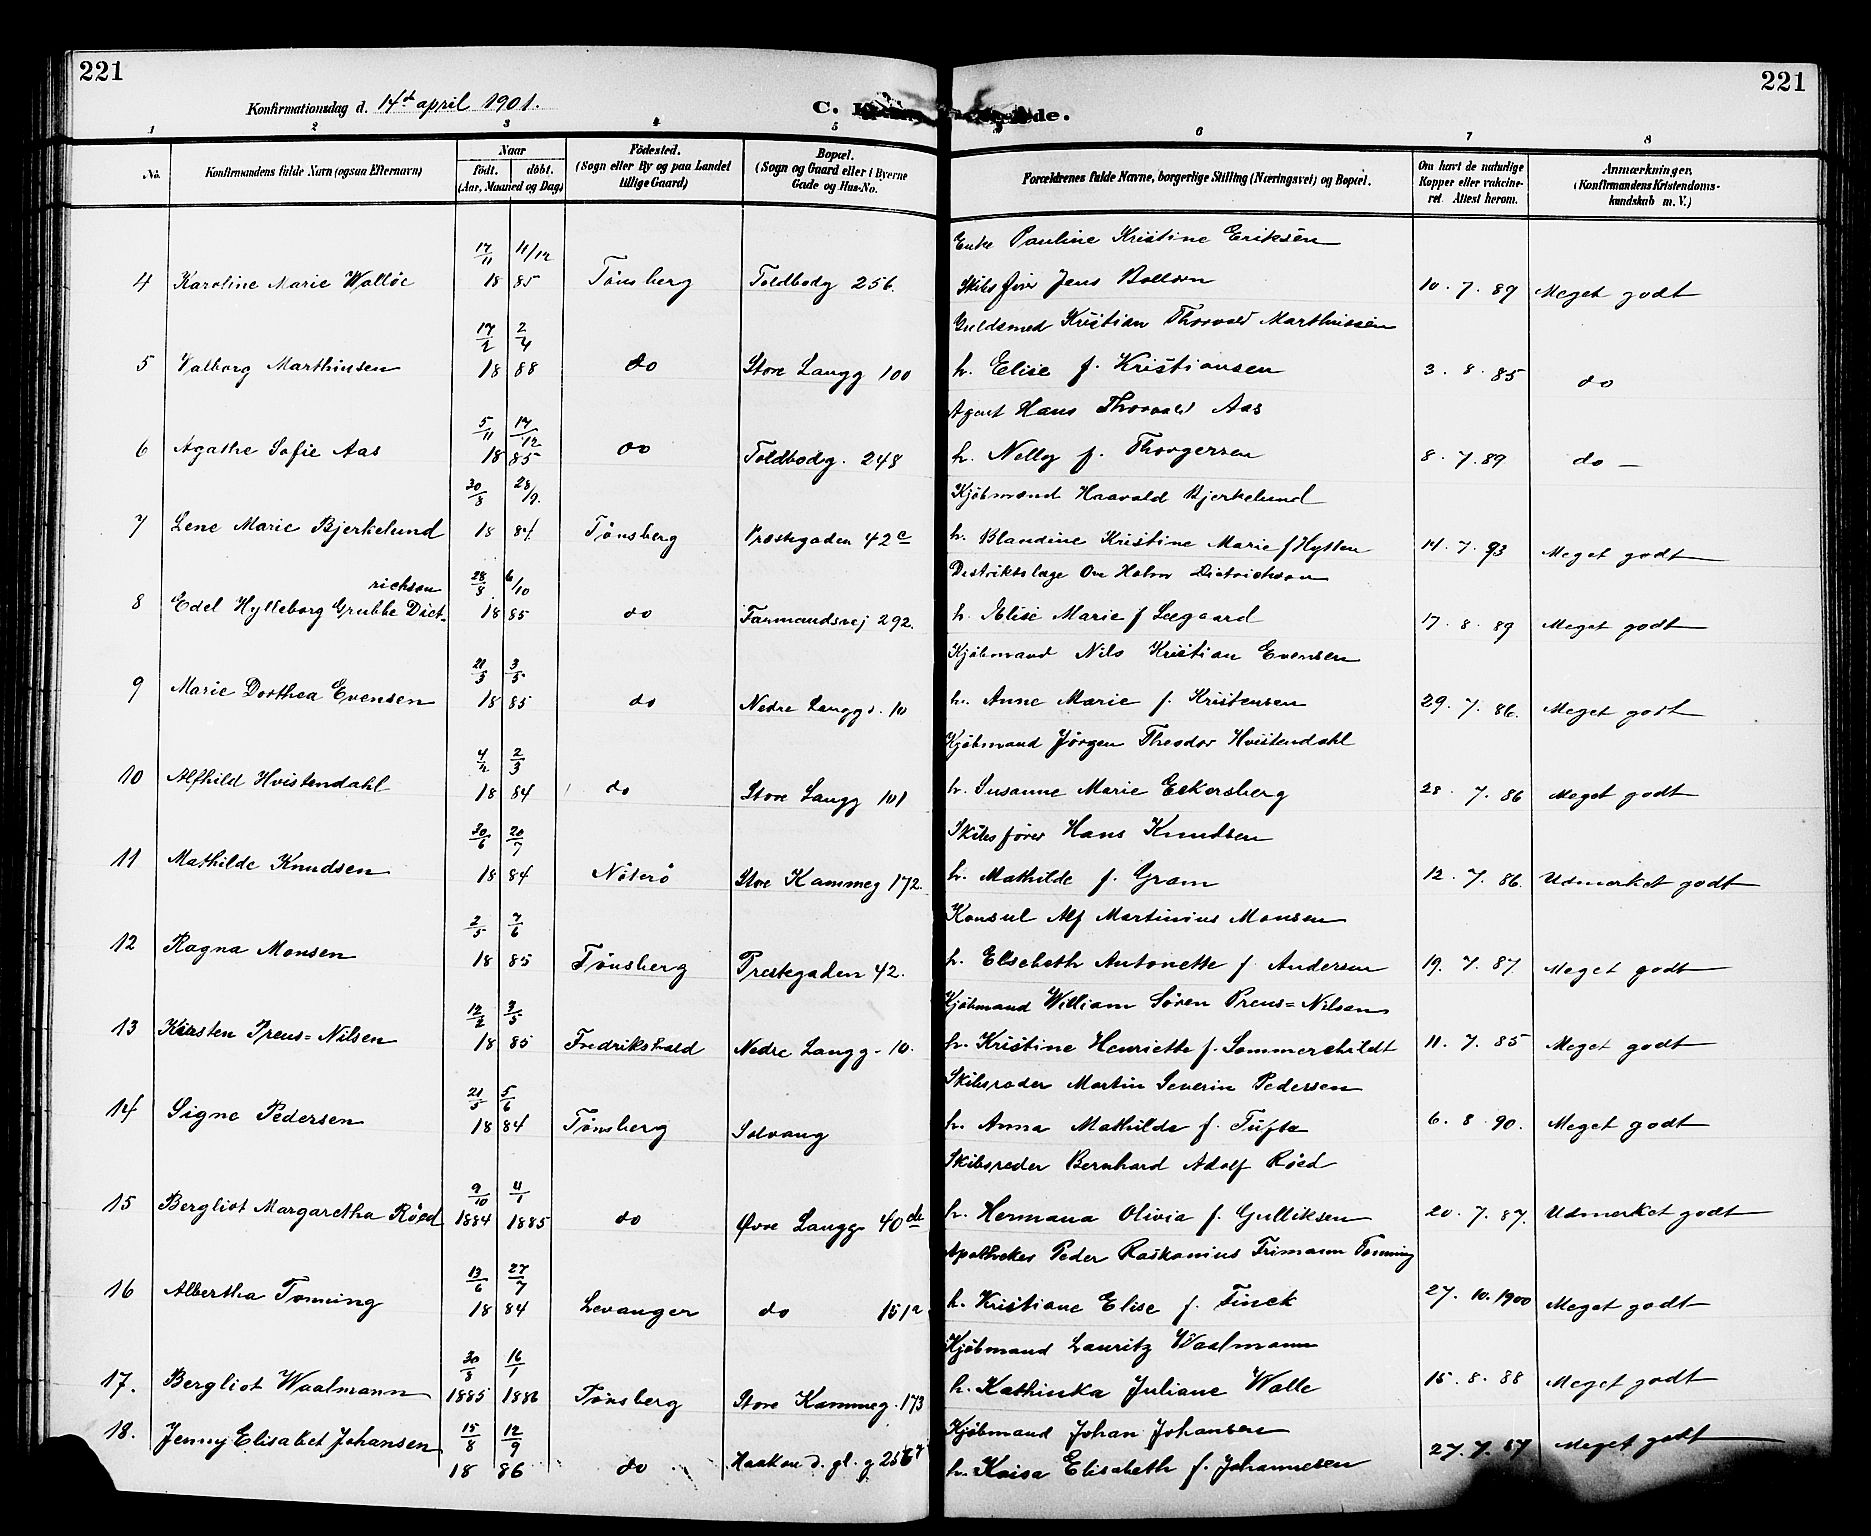 221
221
Konfirmationsdag d. 14de april 1901.
C. de.
1 2 3 4 5 6 7 8
No. Konfirmandens fulde Navn (ogsaa Efternavn) Naar født. døbt. (Aar, Maaned og Dag) Fødested. (Sogn eller By og paa Landet tillige Gaard) Bopæl. (Sogn og Gaard eller i Byerne Gade og Hus-No. Forældrenes fulde Navne, borgerlige Stilling (Næringsvei) og Bopæl. Om havt de naturlige Kopper eller vakcineret. Attest herom. Anmærkninger. (Konfirmandens Kristendomskundskab m. V.)
17/11 11/12 Enke Pauline Kristine Eriksen
4 Karoline Marie Walløe 18 85 Tønsberg Toldbodg 256. Skibsfører Jens 10. 7. 87 Meget godt
17/2 2/4 Guldsmed Kristian Thorvald Marthinsen
5 Valborg Marthinsen 18 88 do Store Langg 100 h. Elise f. Kristiansen 3. 8. 85 do
5/11 17/12 Agent Hans Thorvald Aas
6 Agathe Sofie Aas 18 85 do Toldbodg. 248 h. Nelly f. Thorgersen 8. 7. 89 do —
30/8 28/9. Kjøbmand Haavald Bjerkelund
7 Lene Marie Bjerkelund 18 84 Tønsberg Prestegaden 42c h. Blandine Kristine Marie f Hytten 14. 7. 93 Meget godt
richson 28/8 6/10 Distriktslæge Ove Holm Dietrichson
8 Edel Hylleborg Grubbe Diet- 18 85 do Farmandsvej 292. h. Elise Marie f Seegaard 17. 8. 89 Meget godt
21/3 3/5 Kjøbmand Nils Kristian Evensen
9 Marie Dorthea Evensen 18 85 do Nedre Langg. 10 h. Anne Marie f. Kristensen 29. 7. 86. Meget godt
4/2 2/3 Kjøbmand Jørgen Theodor Hvistendahl
10 Alfhild Hvistendahl 18 84 do Store Langg 101 h. Susanne Marie Eckersberg 28. 7. 86 Meget godt
30/6 20/7 Skibsfører Hans Knudsen
11 Mathilde Knudsen 18 84 Nøterø Store Kammeg 172. h. Mathilde f. Gram 12. 7. 86. Udmerket godt
2/5 7/6 Konsul Alf Martinius Monsen
12 Ragna Monsen 18 85 Tønsberg Prestegaden 42. h. Elsebeth Antonette f. Andersen 19. 7. 87. Meget godt
12/2 3/5 Kjøbmand William Søren Preus=Nilsen
13 Kirsten Preus=Nilsen 18 85 Fredrikshald Nedre Langg. 10. h. Kristine Henriette f. Sommerschildt 11. 7. 85 Meget godt
21/5 5/6 Skibsreder Martin Severin Pedersen
14 Signe Pedersen 18 84 Tønsberg Solvang h. Anna Mathilde f. Tufte 6. 8. 90. Meget godt
9/10 4/1 Skibsreder Bernhard Adolf Røed
15 Bergliot Margaretha Røed 1884 1885 do Øvre Langg. 40 de h. Hermana Olivia f. Gulliksen 20. 7. 87. Udmerket godt
13/6 27/7 Apotheker Peder Trimann Tonning
16 Albertha Tonning 18 84 Levanger do 151a h. Kristiane Elise f. Finck 27. 10. 1900 Meget godt
30/8 16/1 Kjøbmand Lauritz Waalmann
17. Bergliot Waalmann 1885 1886 Tønsberg Store Kammeg. 173 h. Kathinka Juliane Walle 15. 8. 88 Meget godt
15/8 12/9 Kjøbmand Johan Johansen
18. Jenny Elisabet Johansen 18 86 do Haakon d. gl. g h. Kaisa Elisabeth f. Johannesen 27. 7. 87 Meget godt